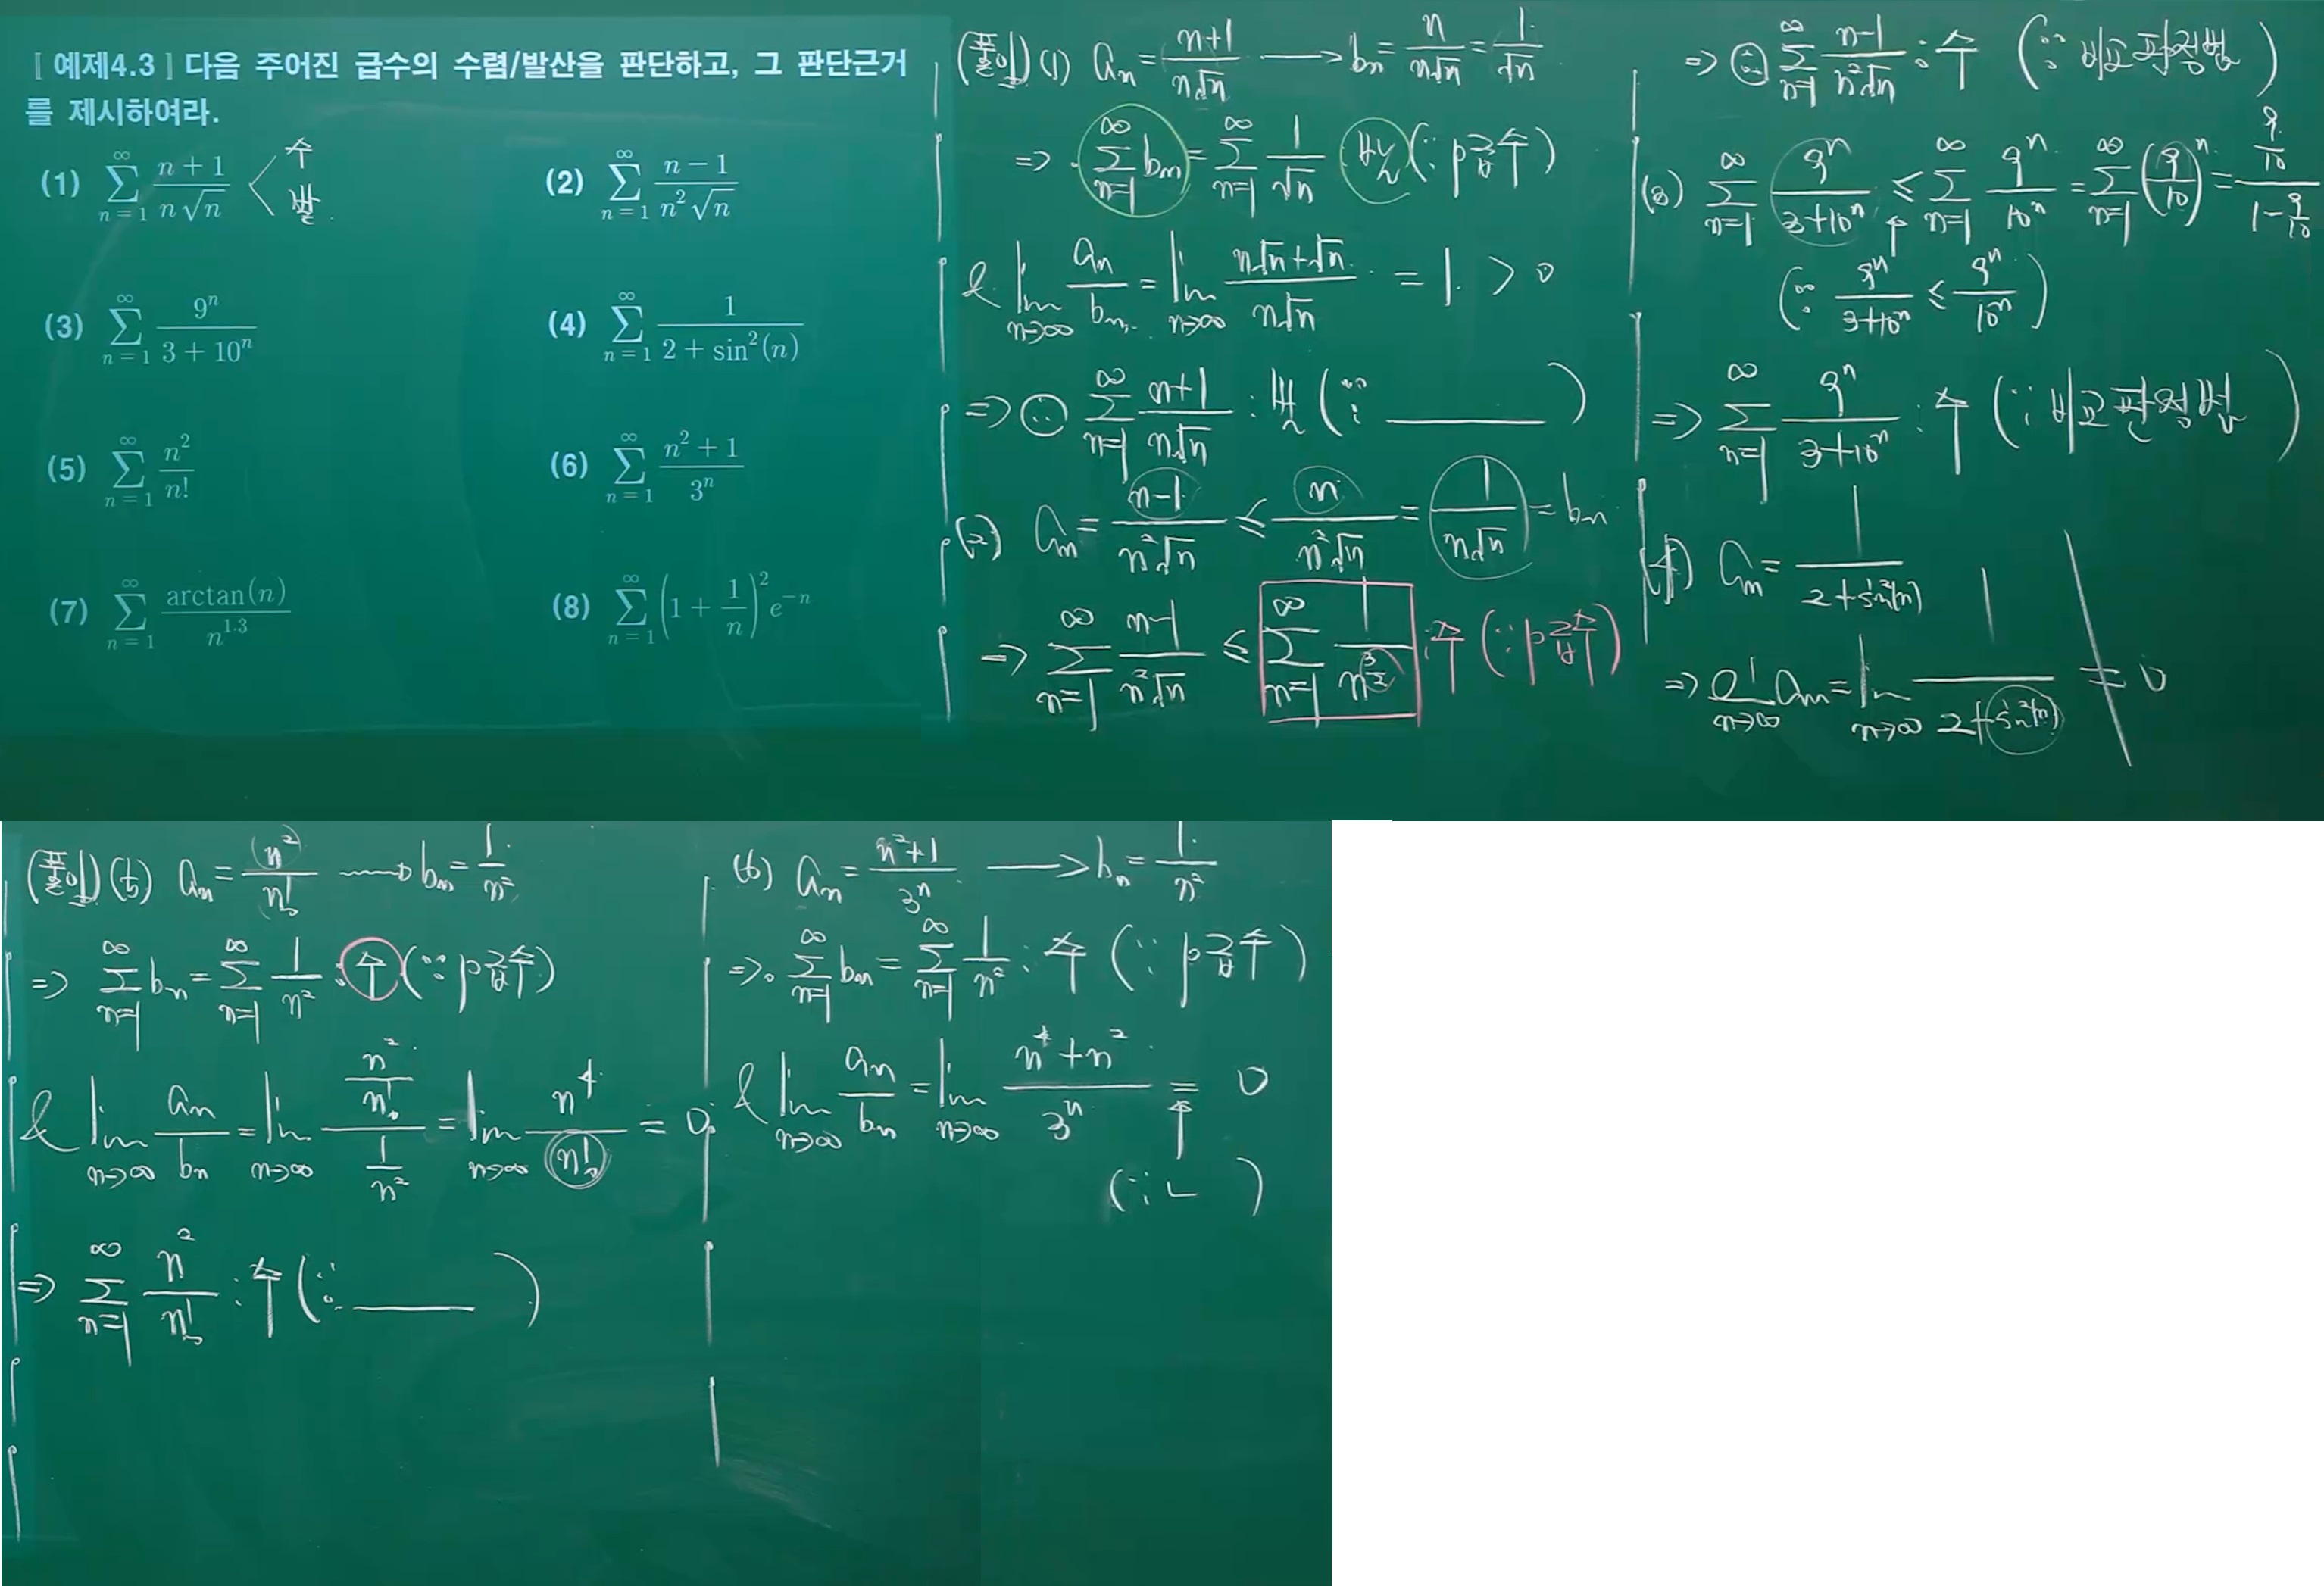 [예제4.3] 다음 주어진 급수의 수렴/발산을 판단하고, 그 판단근거
를 제시하여라.
(1) \sum_{n=1}^{\infty} \frac{n+1}{n\sqrt{n}} < 수 발
(2) \sum_{n=1}^{\infty} \frac{n-1}{n^2\sqrt{n}}
(3) \sum_{n=1}^{\infty} \frac{9^n}{3+10^n}
(4) \sum_{n=1}^{\infty} \frac{1}{2+\sin^2(n)}
(5) \sum_{n=1}^{\infty} \frac{n^2}{n!}
(6) \sum_{n=1}^{\infty} \frac{n^2+1}{3^n}
(7) \sum_{n=1}^{\infty} \frac{\arctan(n)}{n^{1.3}}
(8) \sum_{n=1}^{\infty} \left(1+\frac{1}{n}\right)^2 e^{-n}
(풀이) (1) a_n = \frac{n+1}{n\sqrt{n}} → b_n = \frac{n}{n\sqrt{n}} = \frac{1}{\sqrt{n}}
⇒ \sum_{n=1}^{\infty} b_n = \sum_{n=1}^{\infty} \frac{1}{\sqrt{n}} : 발 (∵ p급수)
& \lim_{n→∞} \frac{a_n}{b_n} = \lim_{n→∞} \frac{n\sqrt{n}+\sqrt{n}}{n\sqrt{n}} = 1 > 0
⇒ ∴ \sum_{n=1}^{\infty} \frac{n+1}{n\sqrt{n}} : 발 (∵ ______)
(2) a_n = \frac{n-1}{n^2\sqrt{n}} ≤ \frac{n}{n^2\sqrt{n}} = \frac{1}{n\sqrt{n}} = b_n
⇒ \sum_{n=1}^{\infty} \frac{n-1}{n^2\sqrt{n}} ≤ \sum_{n=1}^{\infty} \frac{1}{n^{\frac{3}{2}}} : 수 (∵ p급수)
⇒ ∴ \sum_{n=1}^{\infty} \frac{n-1}{n^2\sqrt{n}} : 수 (∵ 비교판정법)
(3) \sum_{n=1}^{\infty} \frac{9^n}{3+10^n} ≤ \sum_{n=1}^{\infty} \frac{9^n}{10^n} = \sum_{n=1}^{\infty} \left(\frac{9}{10}\right)^n = \frac{\frac{9}{10}}{1-\frac{9}{10}}
(∵ \frac{9^n}{3+10^n} ≤ \frac{9^n}{10^n})
⇒ \sum_{n=1}^{\infty} \frac{9^n}{3+10^n} : 수 (∵ 비교판정법)
(4) a_n = \frac{1}{2+\sin^2(n)}
⇒ \lim_{n→∞} a_n = \lim_{n→∞} \frac{1}{2+\sin^2(n)} ≠ 0
(풀이) (5) a_n = \frac{n^2}{n!} → b_n = \frac{1}{n^2}
⇒ \sum_{n=1}^{\infty} b_n = \sum_{n=1}^{\infty} \frac{1}{n^2} : 수 (∵ p급수)
& \lim_{n→∞} \frac{a_n}{b_n} = \lim_{n→∞} \frac{\frac{n^2}{n!}}{\frac{1}{n^2}} = \lim_{n→∞} \frac{n^4}{n!} = 0
⇒ \sum_{n=1}^{\infty} \frac{n^2}{n!} : 수 (∵ ______)
(6) a_n = \frac{n^2+1}{3^n} → b_n = \frac{1}{n^2}
⇒ \sum_{n=1}^{\infty} b_n = \sum_{n=1}^{\infty} \frac{1}{n^2} : 수 (∵ p급수)
& \lim_{n→∞} \frac{a_n}{b_n} = \lim_{n→∞} \frac{n^4+n^2}{3^n} = 0
↑
(∵ L )